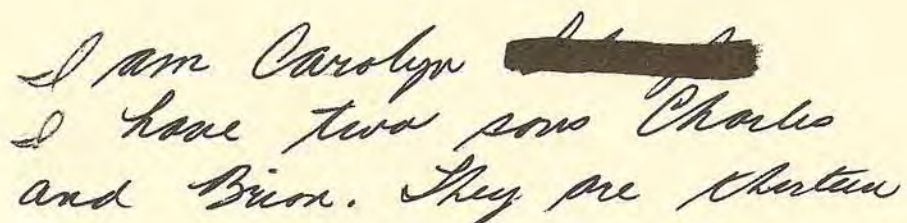 I am Carolyn
I have two sons Charles
and Brion. They are thirteen